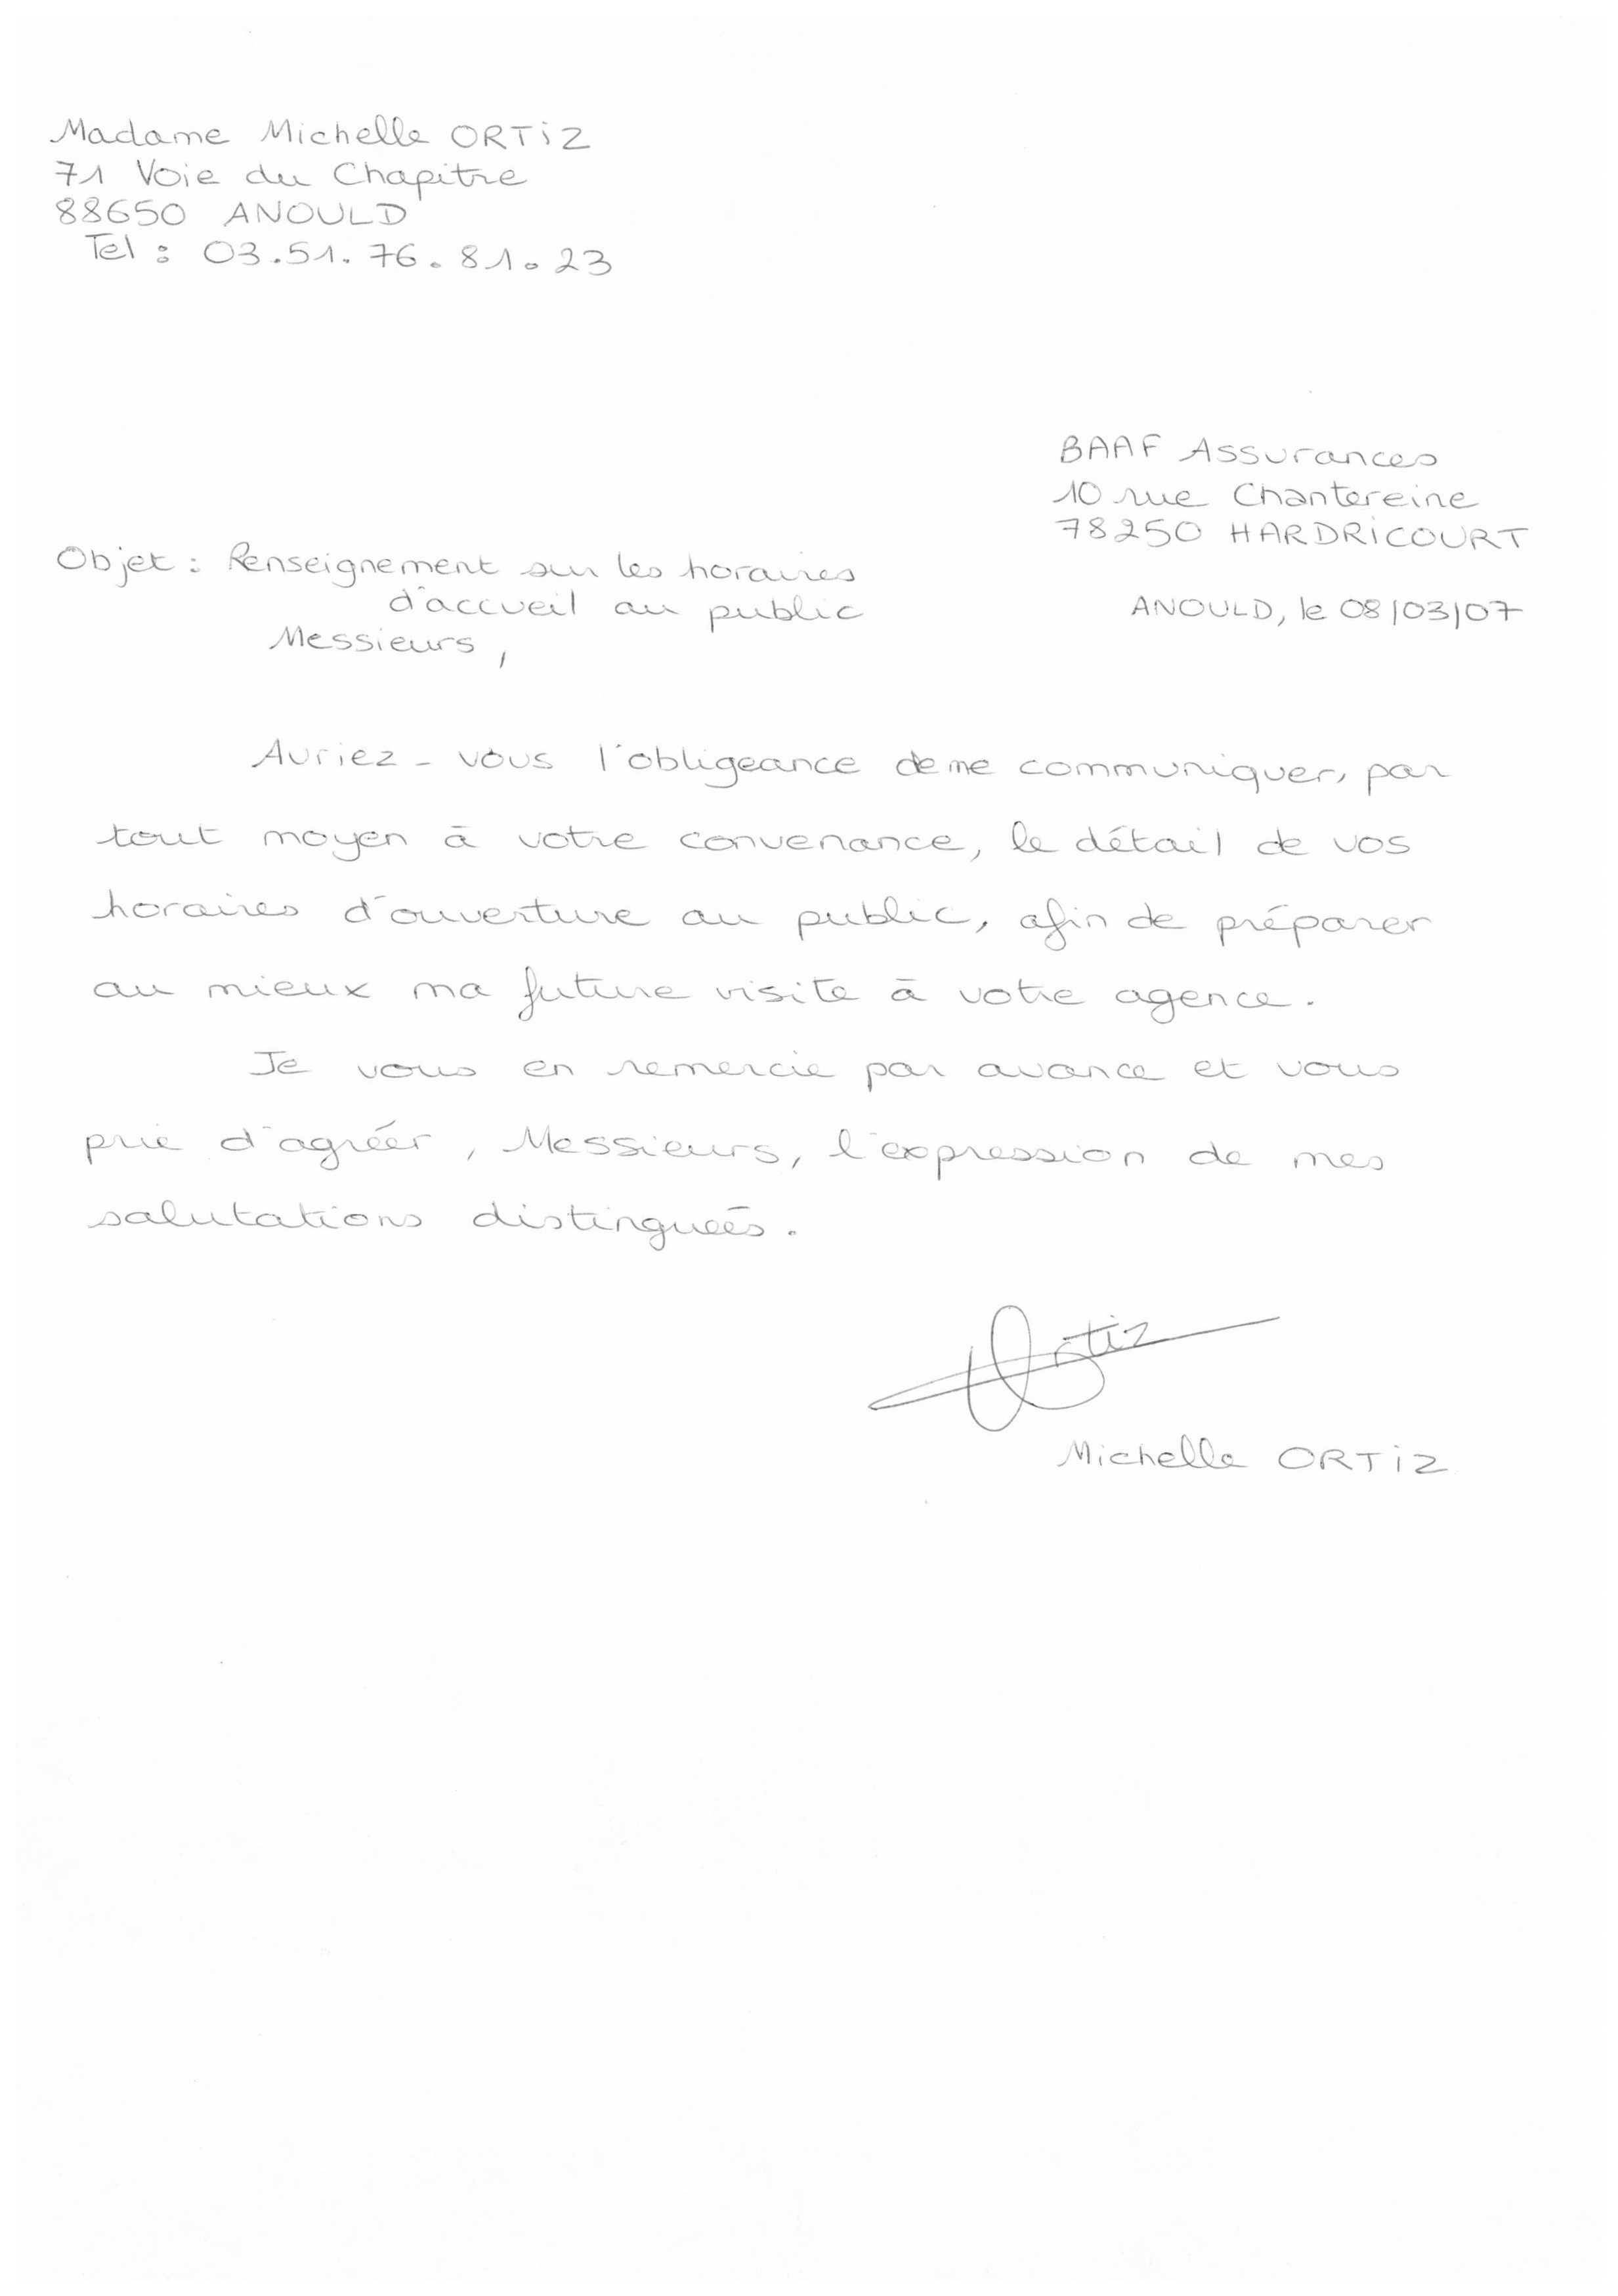 Madame Michelle ORTiZ
71 Voie du Chapitre
88650 ANOULD
Tel : 03.51.76.81.23
BAAF Assurances
10 rue Chantereine
78250 HARDRiCOURT
Objet : Renseignement sur les horaires
d'accueil au public
ANOULD, le 08/03/07
Messieurs,
Auriez-vous l'obligeance de me communiquer, par
tout moyen à votre convenance, le détail de vos
horaires d'ouverture au public, afin de préparer
au mieux ma future visite à votre agence.
Je vous en remercie par avance et vous
prie d'agréer, Messieurs, l'expression de mes
salutations distinguées.
Ortiz
Michelle ORTiZ